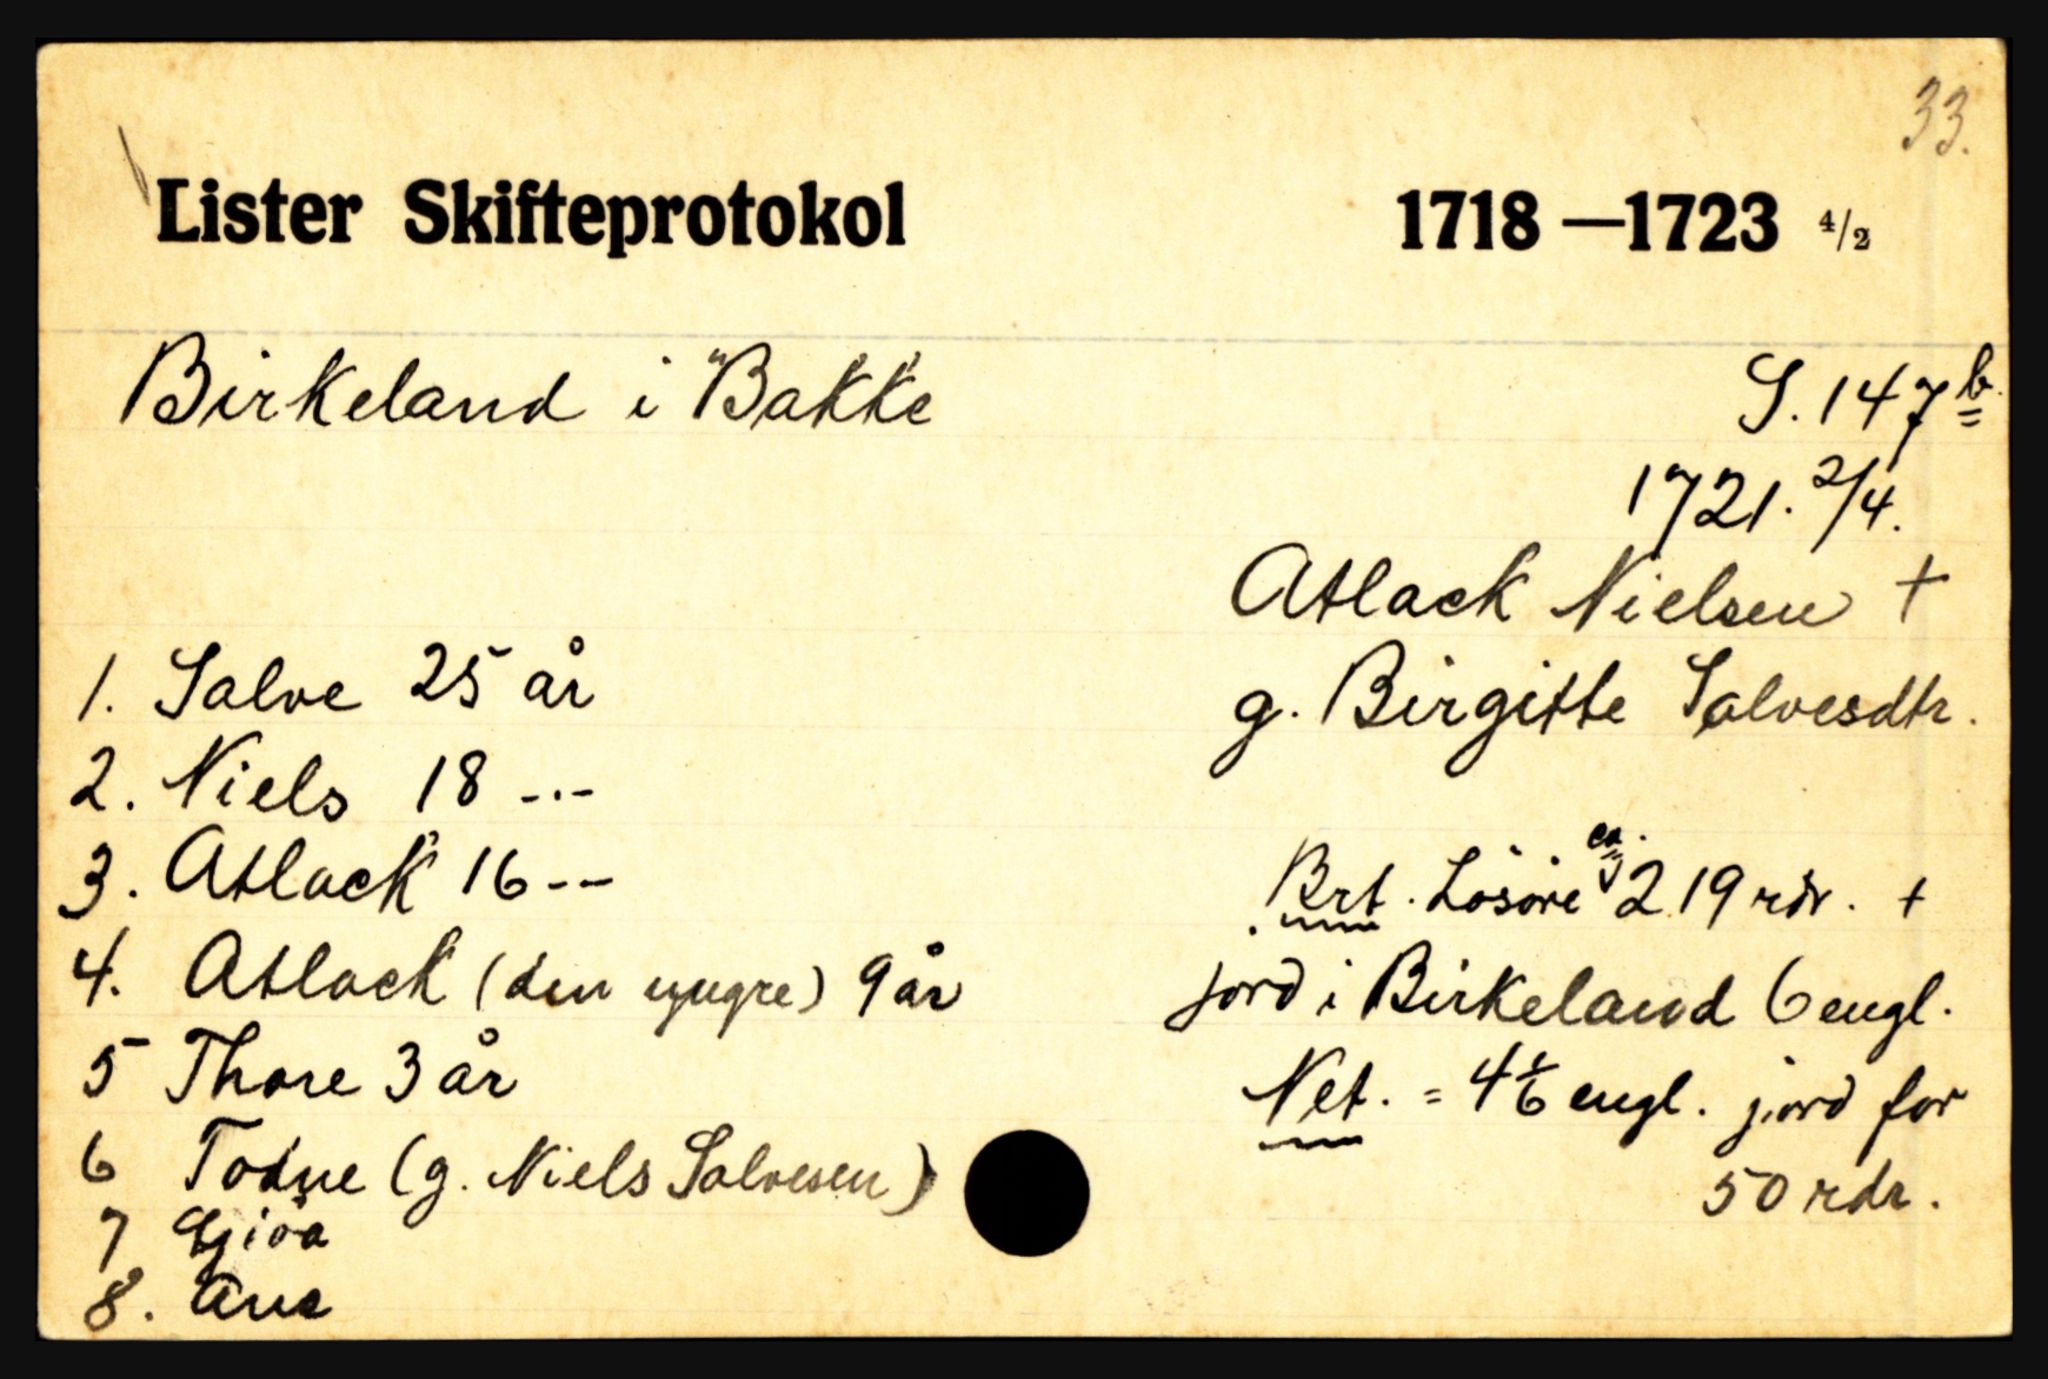 33.
Lister Skifteprotokol 1718—1723 4/2
Birkeland i Bakke S. 147 b
1721. 2/4.
Atlack Nielsen +
g. Birgitte Salvesdtr.
1. Salve 25 år
2. Niels 18 -.-
3. Atlack 16 --
4. Atlack (den yngre) 9 år
5 Thore 3 år
6 Todne (g. Niels Salvesen)
7 Gjöa
8. Ane
Brt. Lösöre ca. 219 rdr. +
jord i Birkeland 6 engl.
Net. = 4 1/6 engl. jord for
50 rdr.